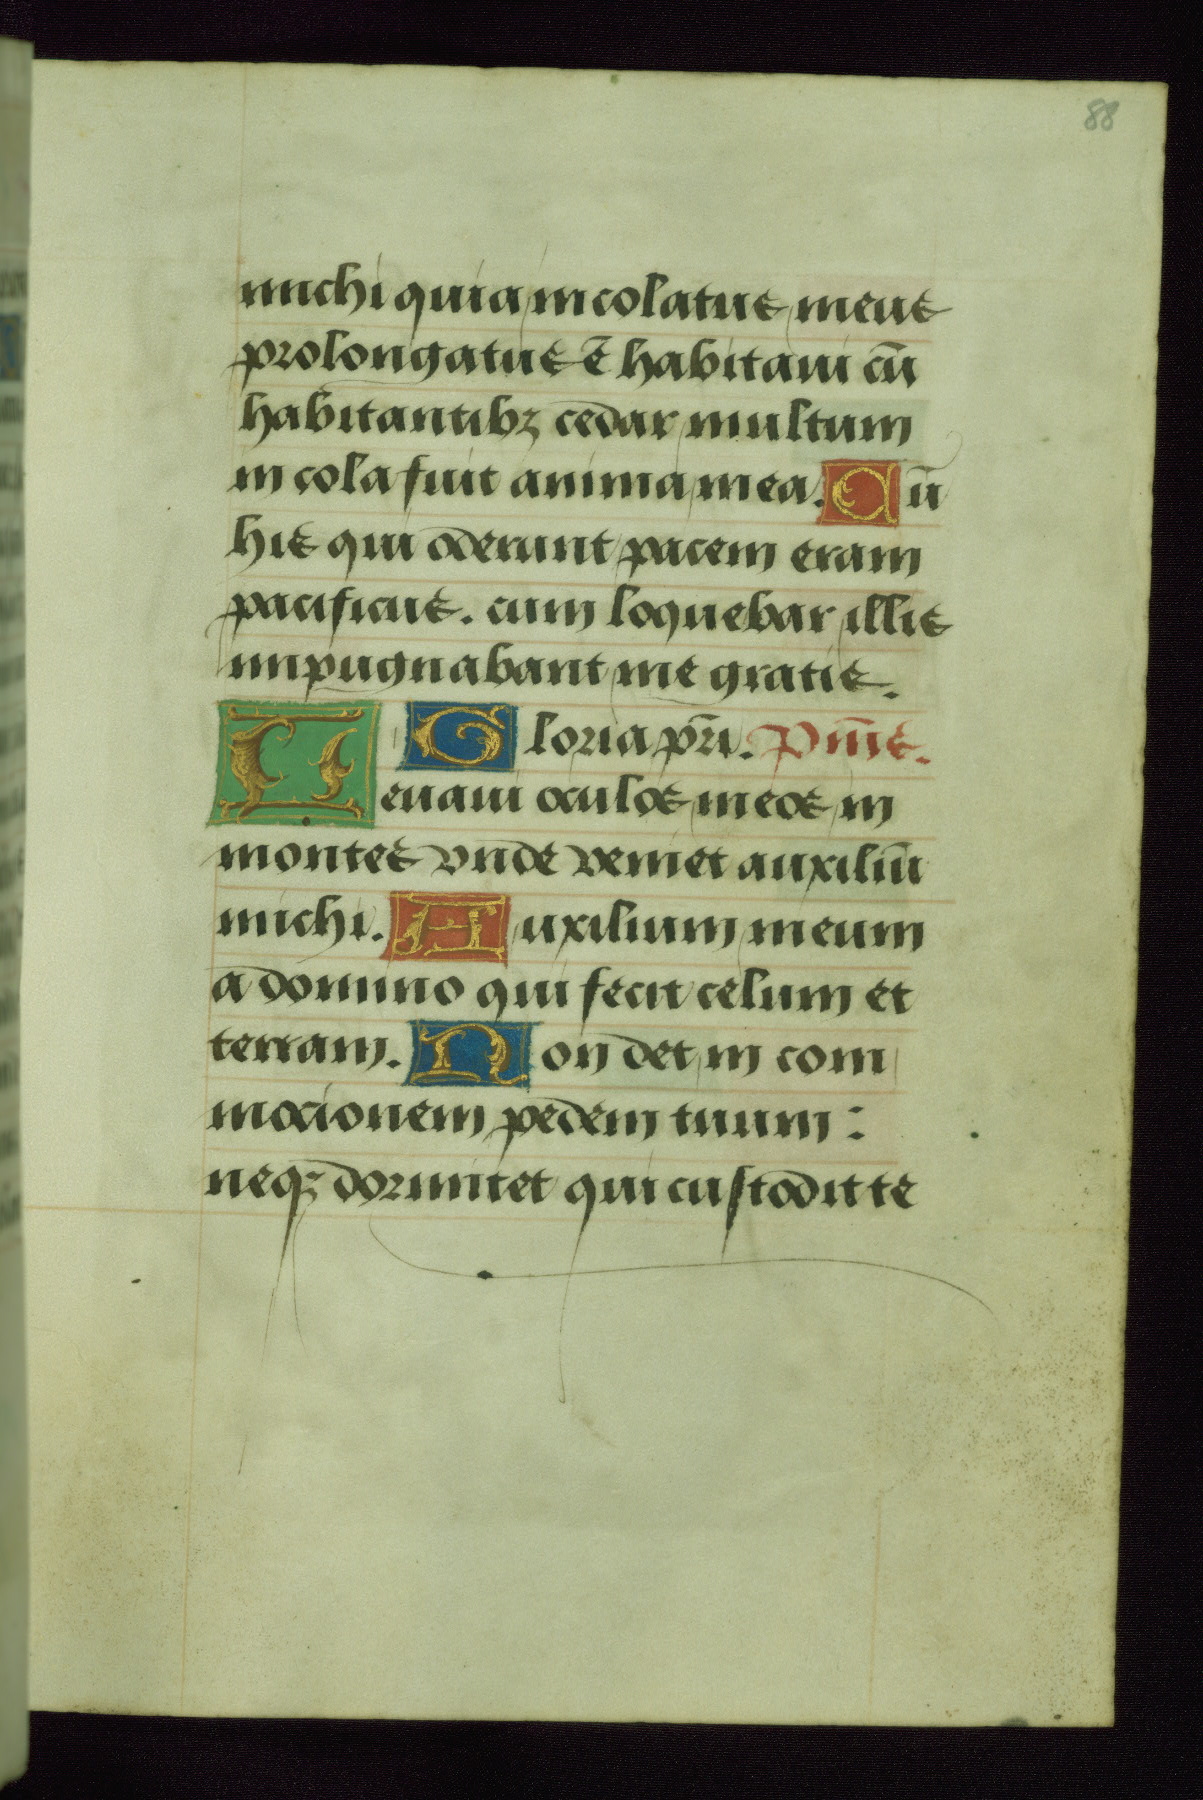 88
michi quia incolatus meus
prolongatus ē habitaui cū
habitantibꝫ cedar multum
incola fuit anima mea. Cū
his qui oderunt pacem eram
pacificus. cum loquebar illis
impugnabant me gratis.
Gloria pr̄i. Pm̄s.
Leuaui oculos meos in
montes vnde veniet auxiliū
michi. Auxilium meum
a domino qui fecit celum et
terram. Non det in com
mocionem pedem tuum:
neqꝫ dormitet qui custodit te